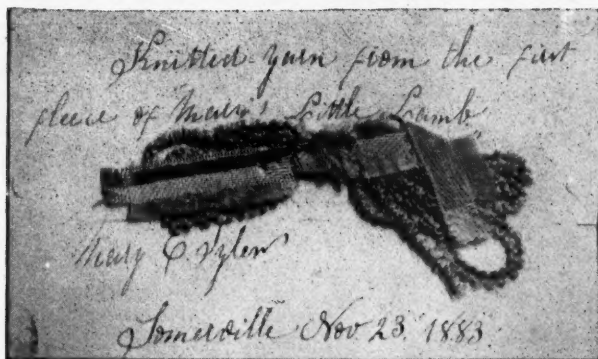 Knitted yarn from the first
fleece of Mary's Little Lamb
Mary E Tyler
Somerville Nov 23. 1883